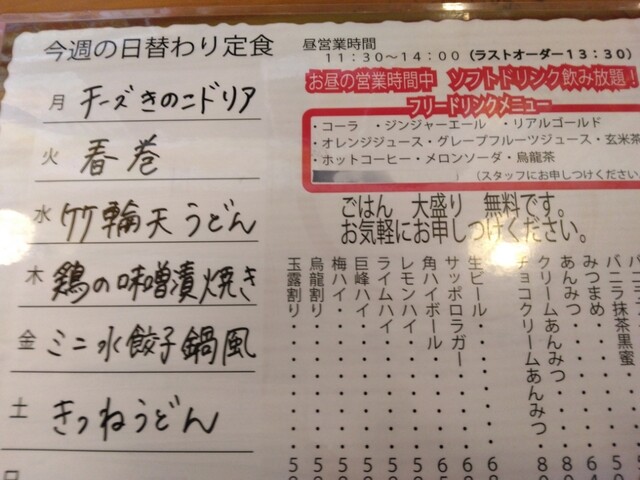 今週の日替わり定食
月 チーズきのこドリア
火 春巻
水 竹輪天うどん
木 鶏の味噌漬焼き
金 ミニ水餃子鍋風
土 きつねうどん
昼営業時間
11:30～14:00(ラストオーダー13:30)
お昼の営業時間中 ソフトドリンク飲み放題!
フリードリンクメニュー
・コーラ ・ジンジャーエール ・リアルゴールド
・オレンジジュース・グレープフルーツジュース・玄米茶
・ホットコーヒー・メロンソーダ・烏龍茶
(スタッフにお申しつけください
ごはん 大盛り 無料です。
お気軽にお申しつけください。
バニラ抹茶黒蜜
みつまめ・・・
あんみつ・・・
クリームあんみつ・・
チョコクリームあんみつ・
生ビール・・・
サッポロラガー・・・
角ハイボール・・・
レモンハイ・・・
ライムハイ・・・
巨峰ハイ・・・
梅ハイ・・・
烏龍割り・・・
玉露割り・・・